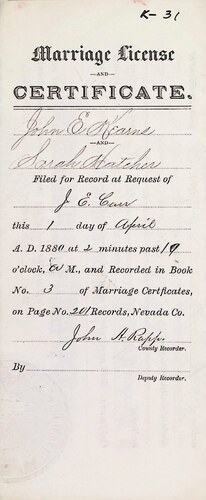 K- 31
Marriage License
—AND—
CERTIFICATE.
John E Kearns
—AND—
Sarah Hatcher
Filed for Record at Request of
J. E. Carr
this 1 day of April
A. D. 1880 at 2 minutes past
o'clock, A M., and Recorded in Book
No. 3 of Marriage Certficates,
on Page No. 201 Records, Nevada Co.
John A. Rapp.
County Recorder.
By
Deputy Recorder.